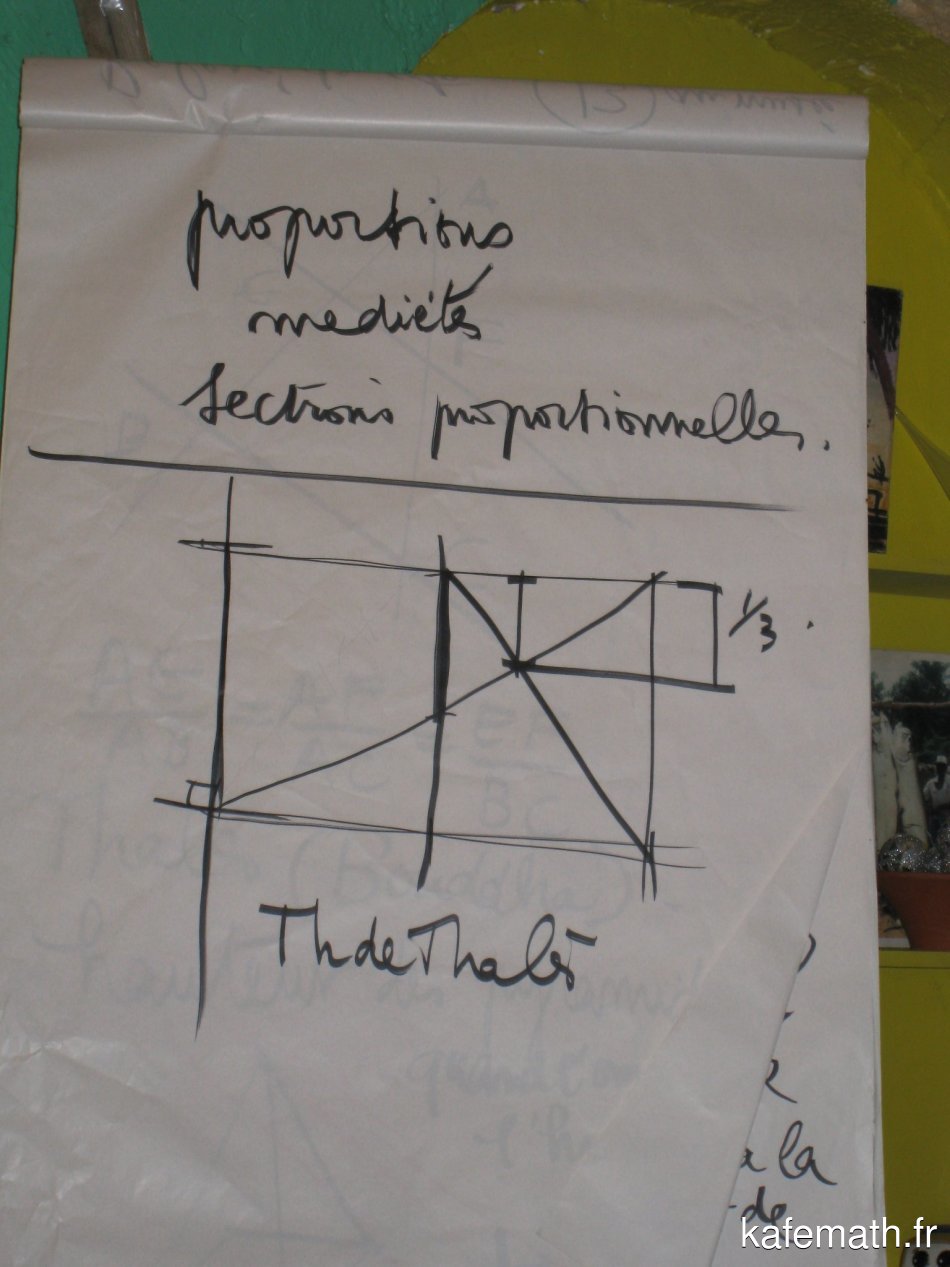 proportions
mediétés
Sections proportionnelles.
1/3.
Th de Thalès
a la
de
kafemath.fr